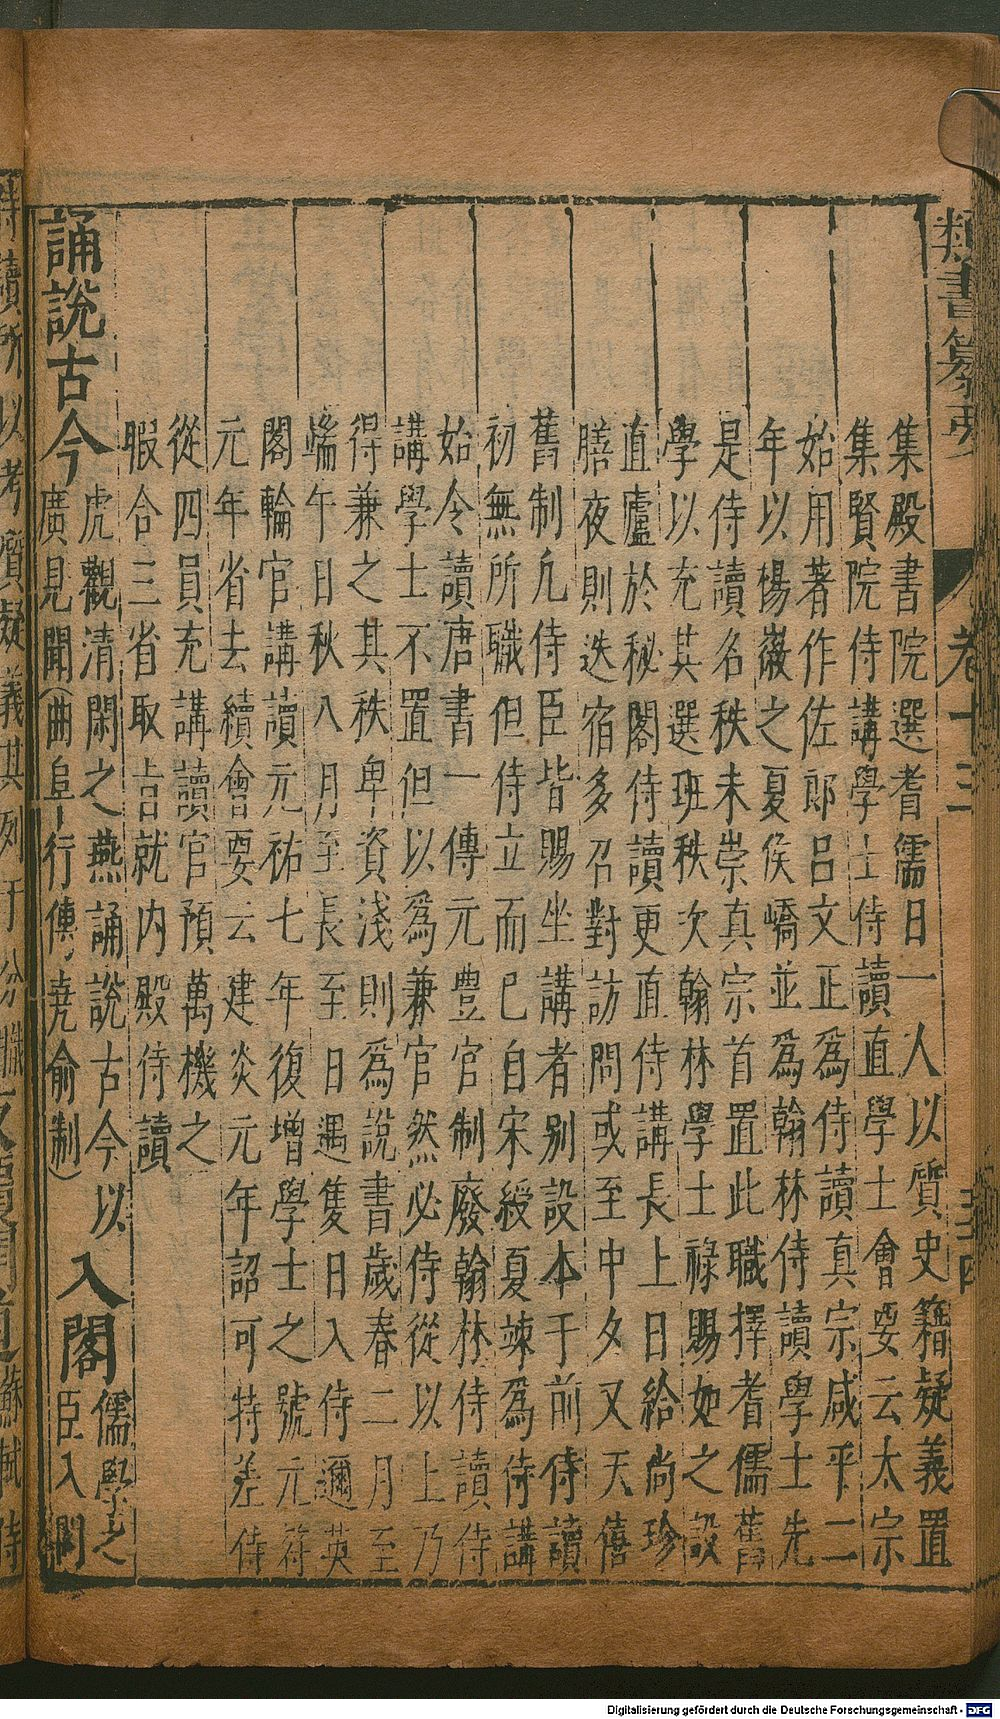 類書纂要 卷十三 三十四
集殿書院選耆儒日一人以質史籍疑義置
集賢院侍講學士侍讀直學士會要云太宗
始用著作佐郎呂文正為侍讀真宗咸平二
年以楊嶶之夏侯嶠並為翰林侍讀學士先
是侍讀名秩未崇真宗首置此職擇耆儒舊
學以充其選班秩次翰林學士祿賜如之設
直廬於秘閣侍讀更直侍講長上日給尚珍
膳夜則迭宿多召對訪問或至中夕又天僖
舊制凢侍臣皆賜坐講者別設本于前侍讀
初無所職但侍立而已自宋綬夏竦為侍講
始令讀唐書一傳元豊官制廢翰林侍讀侍
講學士不置但以為兼官然必侍從以上乃
得兼之其秩卑資淺則為說書歲春二月至
端午日秋八月至長至日遇隻日入侍邇英
閣輪官講讀元祐七年復增學士之號元符
元年省去續會要云建炎元年詔可特差侍
從四員充講讀官預萬機之
暇合三省取㫖就內殿侍讀
誦說古今 虎觀清閑之燕誦說古今以
廣見聞(曲阜行傅堯俞制) 入閣 儒學之
臣入閣
侍讀所以考質疑義其列于分職